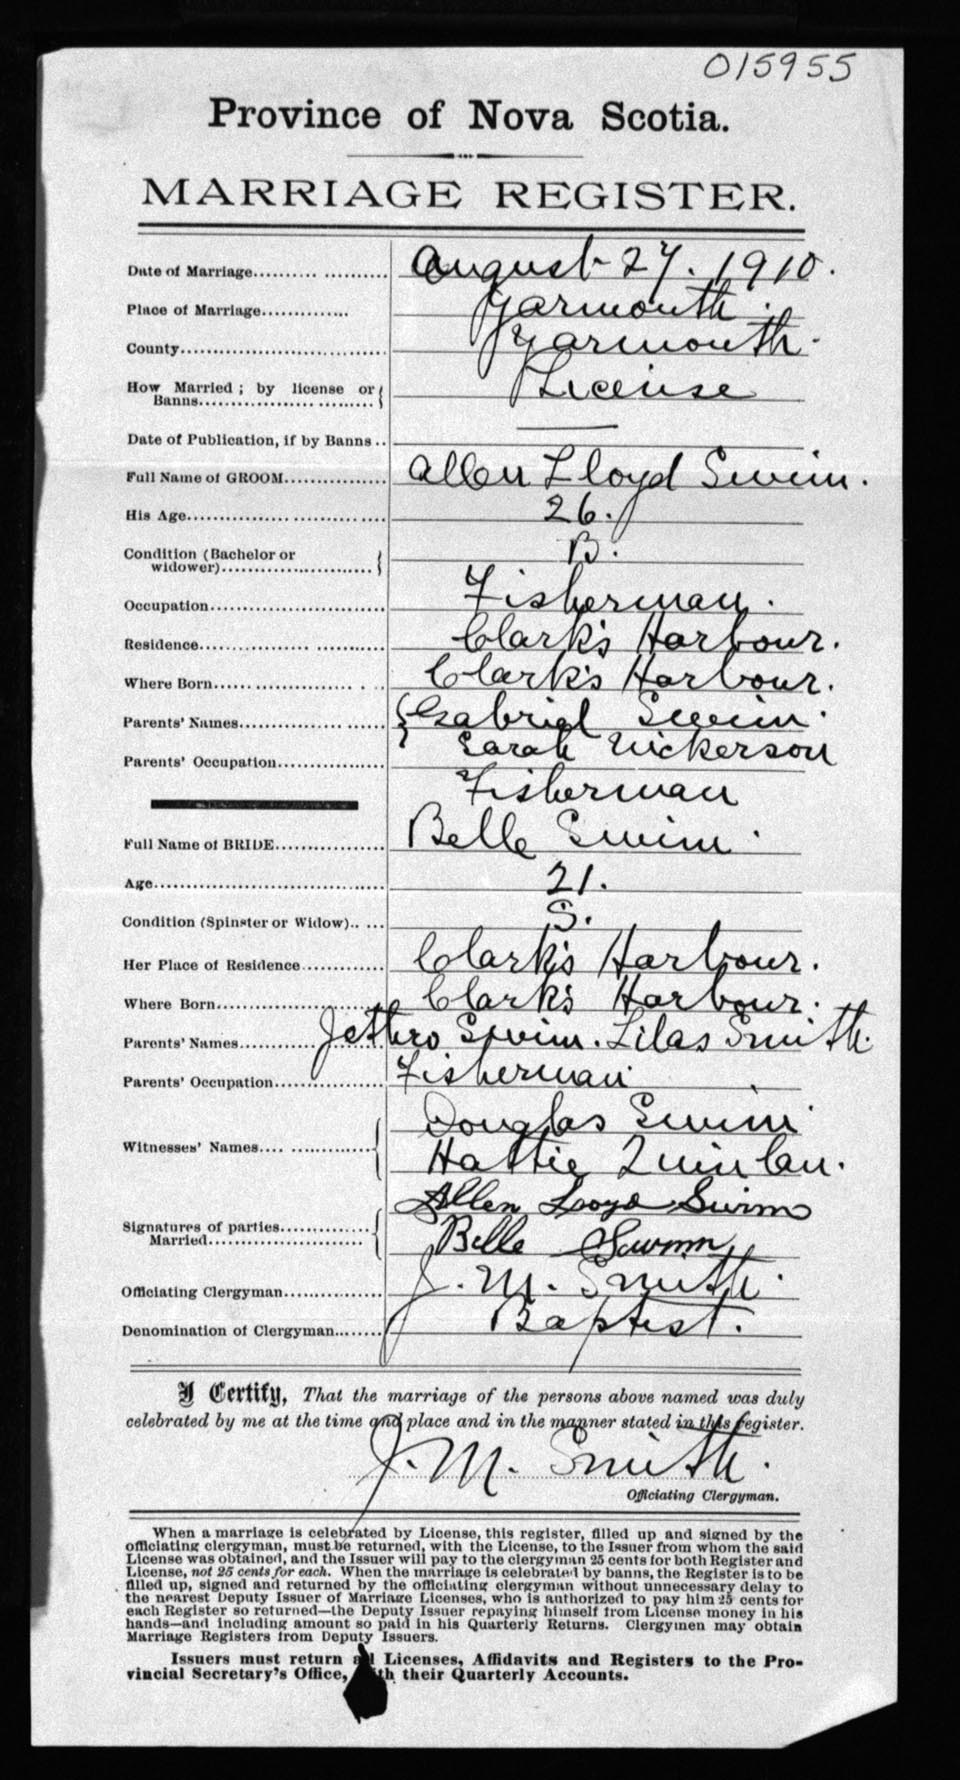 015955
Province of Nova Scotia.
MARRIAGE REGISTER.
Date of Marriage.......... ........... August 27. 1910.
Place of Marriage.............. Yarmouth.
County................................ Yarmouth.
How Married ; by license or License
Banns.................... .........
Date of Publication, if by Banns .. —
Full Name of GROOM................. Allen Lloyd Swim.
His Age................................ 26.
Condition (Bachelor or B.
widower)...........................
Occupation............................ Fisherman.
Residence.................. ........... Clark's Harbour.
Where Born........................ Clark's Harbour.
Parents' Names........................ Gabriel Swim.
Sarah Nickerson
Parents' Occupation.................
Fisherman
Full Name of BRIDE................. Belle Swim.
Age..................................... 21.
Condition (Spinster or Widow).. ... S.
Her Place of Residence............. Clark's Harbour.
Where Born........................... Clark's Harbour.
Parents' Names........................ Jethro Swim. Lilas Smith.
Parents' Occupation................. Fisherman
Douglas Swim
Witnesses' Names.... ................
Hattie Quinlan.
Allen Loyd Swim
Signatures of parties..............
Married........................... Belle Swimm
Officiating Clergyman............... J. M. Smith.
Denomination of Clergyman........ Baptist.
I Certify, That the marriage of the persons above named was duly
celebrated by me at the time and place and in the manner stated in this register.
J. M. Smith.
Officiating Clergyman.
When a marriage is celebrated by License, this register, filled up and signed by the
officiating clergyman, must be returned, with the License, to the Issuer from whom the said
License was obtained, and the Issuer will pay to the clergyman 25 cents for both Register and
License, not 25 cents for each. When the marriage is celebrated by banns, the Register is to be
filled up, signed and returned by the officiating clergyman without unnecessary delay to
the nearest Deputy Issuer of Marriage Licenses, who is authorized to pay him 25 cents for
each Register so returned—the Deputy Issuer repaying himself from License money in his
hands—and including amount so paid in his Quarterly Returns. Clergymen may obtain
Marriage Registers from Deputy Issuers.
Issuers must return all Licenses, Affidavits and Registers to the Pro-
vincial Secretary's Office, with their Quarterly Accounts.